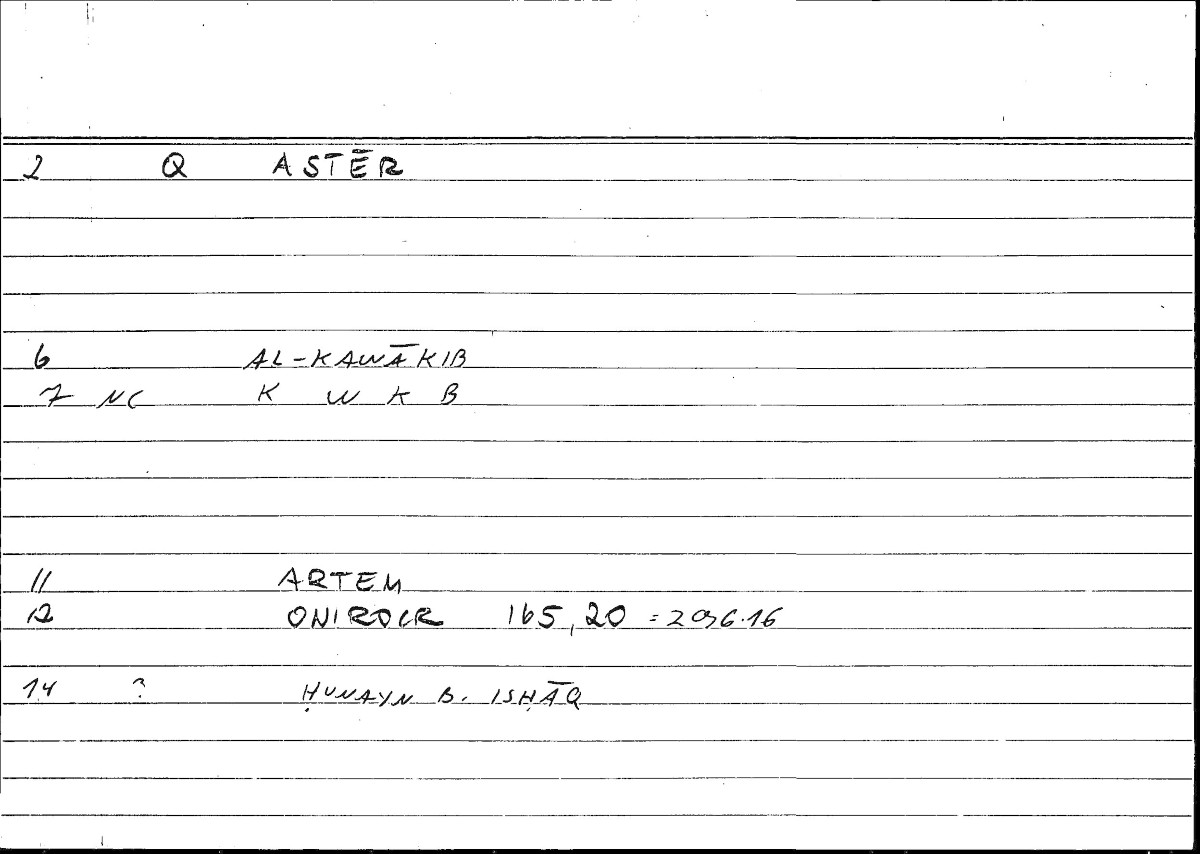 2 Q ASTĒR
6 AL-KAWĀKIB
7 NC K W K B
11 ARTEM
12 ONIROCR 165,20 = 296.16
14 ? ḤUNAYN B. ISḤĀQ